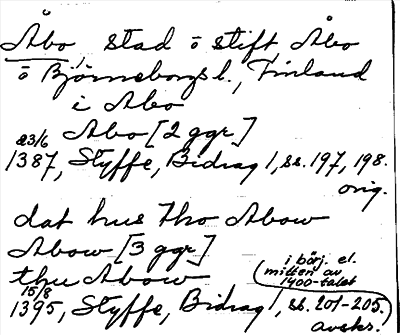 Åbo, stad o stift, Åbo
o Björneborgs l., Finland
i Abo
Abo [2 ggr]
23/6
1387, Styffe, Bidrag 1, ss. 197, 198.
orig.
dat hus tho Abow
Abow [3 ggr]
thu Abow
(i börj. el.
mitten av
1400-talet
15/8
1395, Styffe, Bidrag 1, ss. 201-205.
avskr.